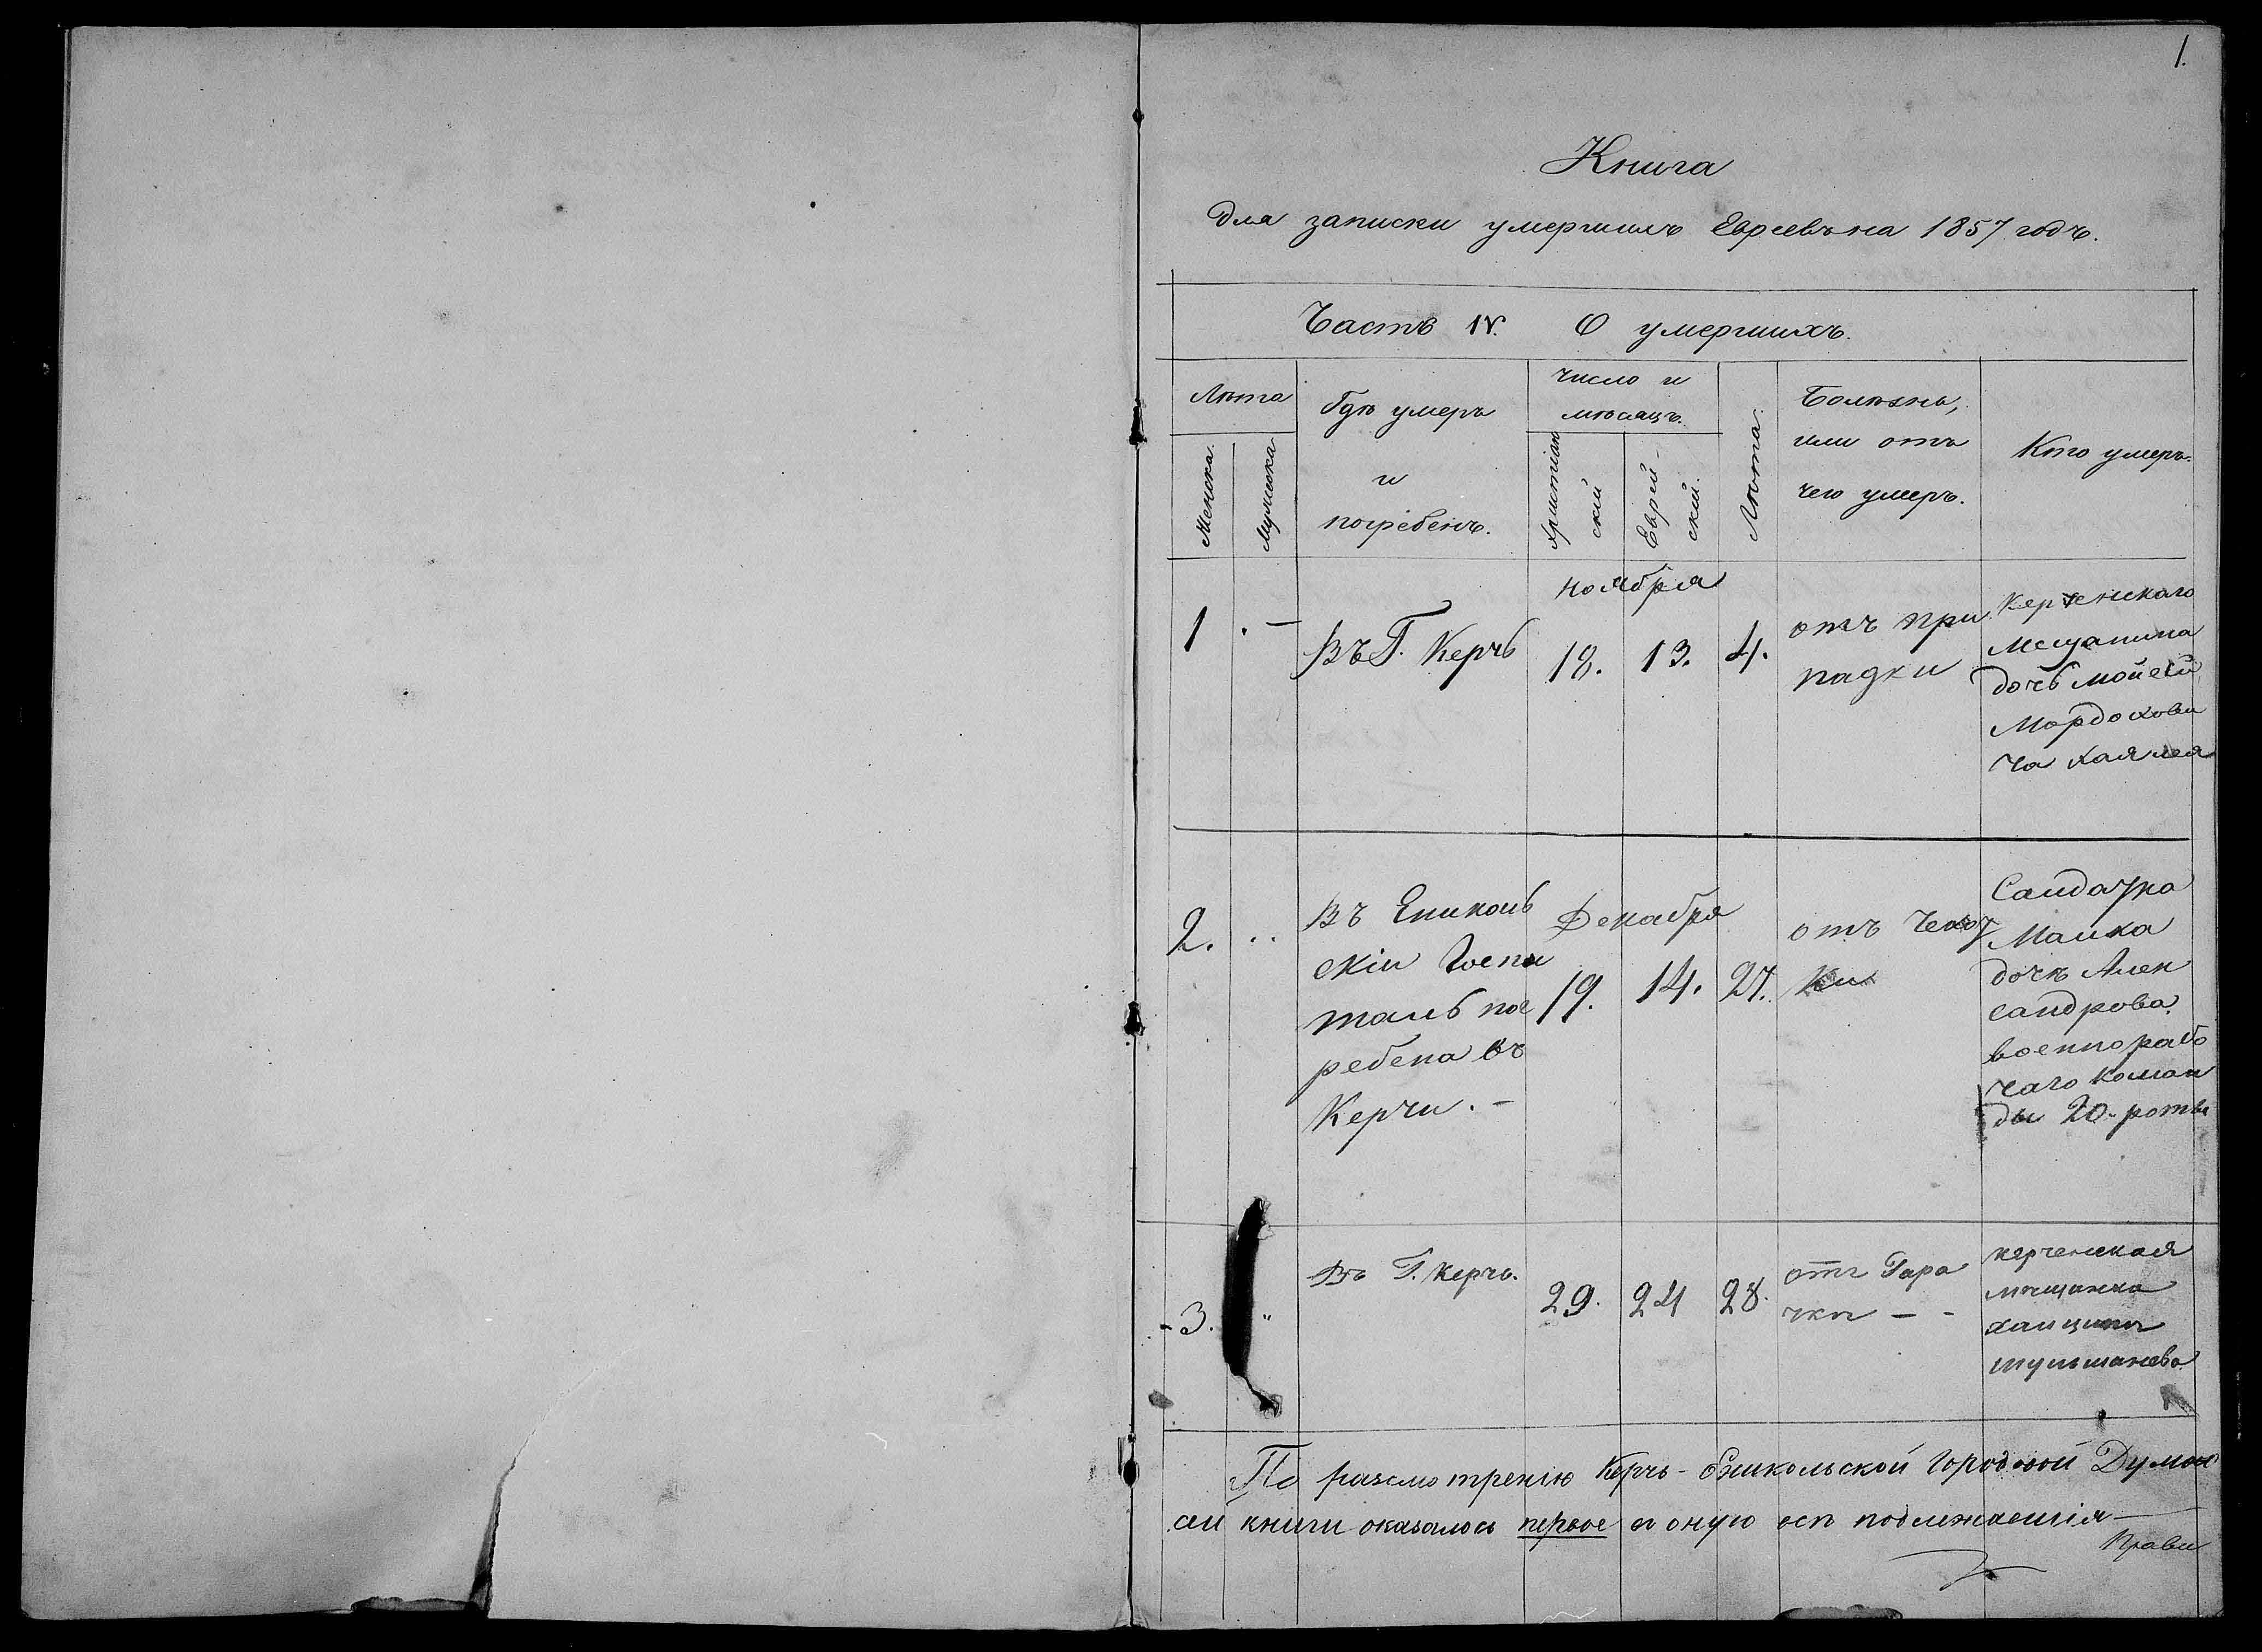 1.
Книга
для записки умершихъ Евреевъ на 1857 годъ.
Часть IV. О умершихъ.
Лѣта
Женска.
Мужеска
Гдѣ умеръ
и
погребенъ.
Число и
мѣсяцъ.
Христіан
скій
Еврей-
скій.
Лѣта.
Болѣзнь,
или отъ
чего умеръ.
Кто умеръ.
1 . –
Въ Г. Керчь
ноября
18. 13. 4.
отъ при
падки
Керченскаго
Мещанина
дочь Мойсей
Мордохови
ча Хая лея
2. ..
Въ Еникаль
скіи Госпи
таль пог
ребена въ
Керчи. –
Декабря
19. 14. 27.
отъ
ки
Салдатка
Малка
дочь Алек
сандрова
военнорабо
чаго коман
ды 20. роты
- 3. "
Въ Г. Керчь.
29. 24 28.
отъ Гара
чки – -
керченская
мѣщанка
По разсмотренію Керчь-Еникольской Городской Думою
сей книги оказалось первое въ оную всѣ подлежавшія –
Прави